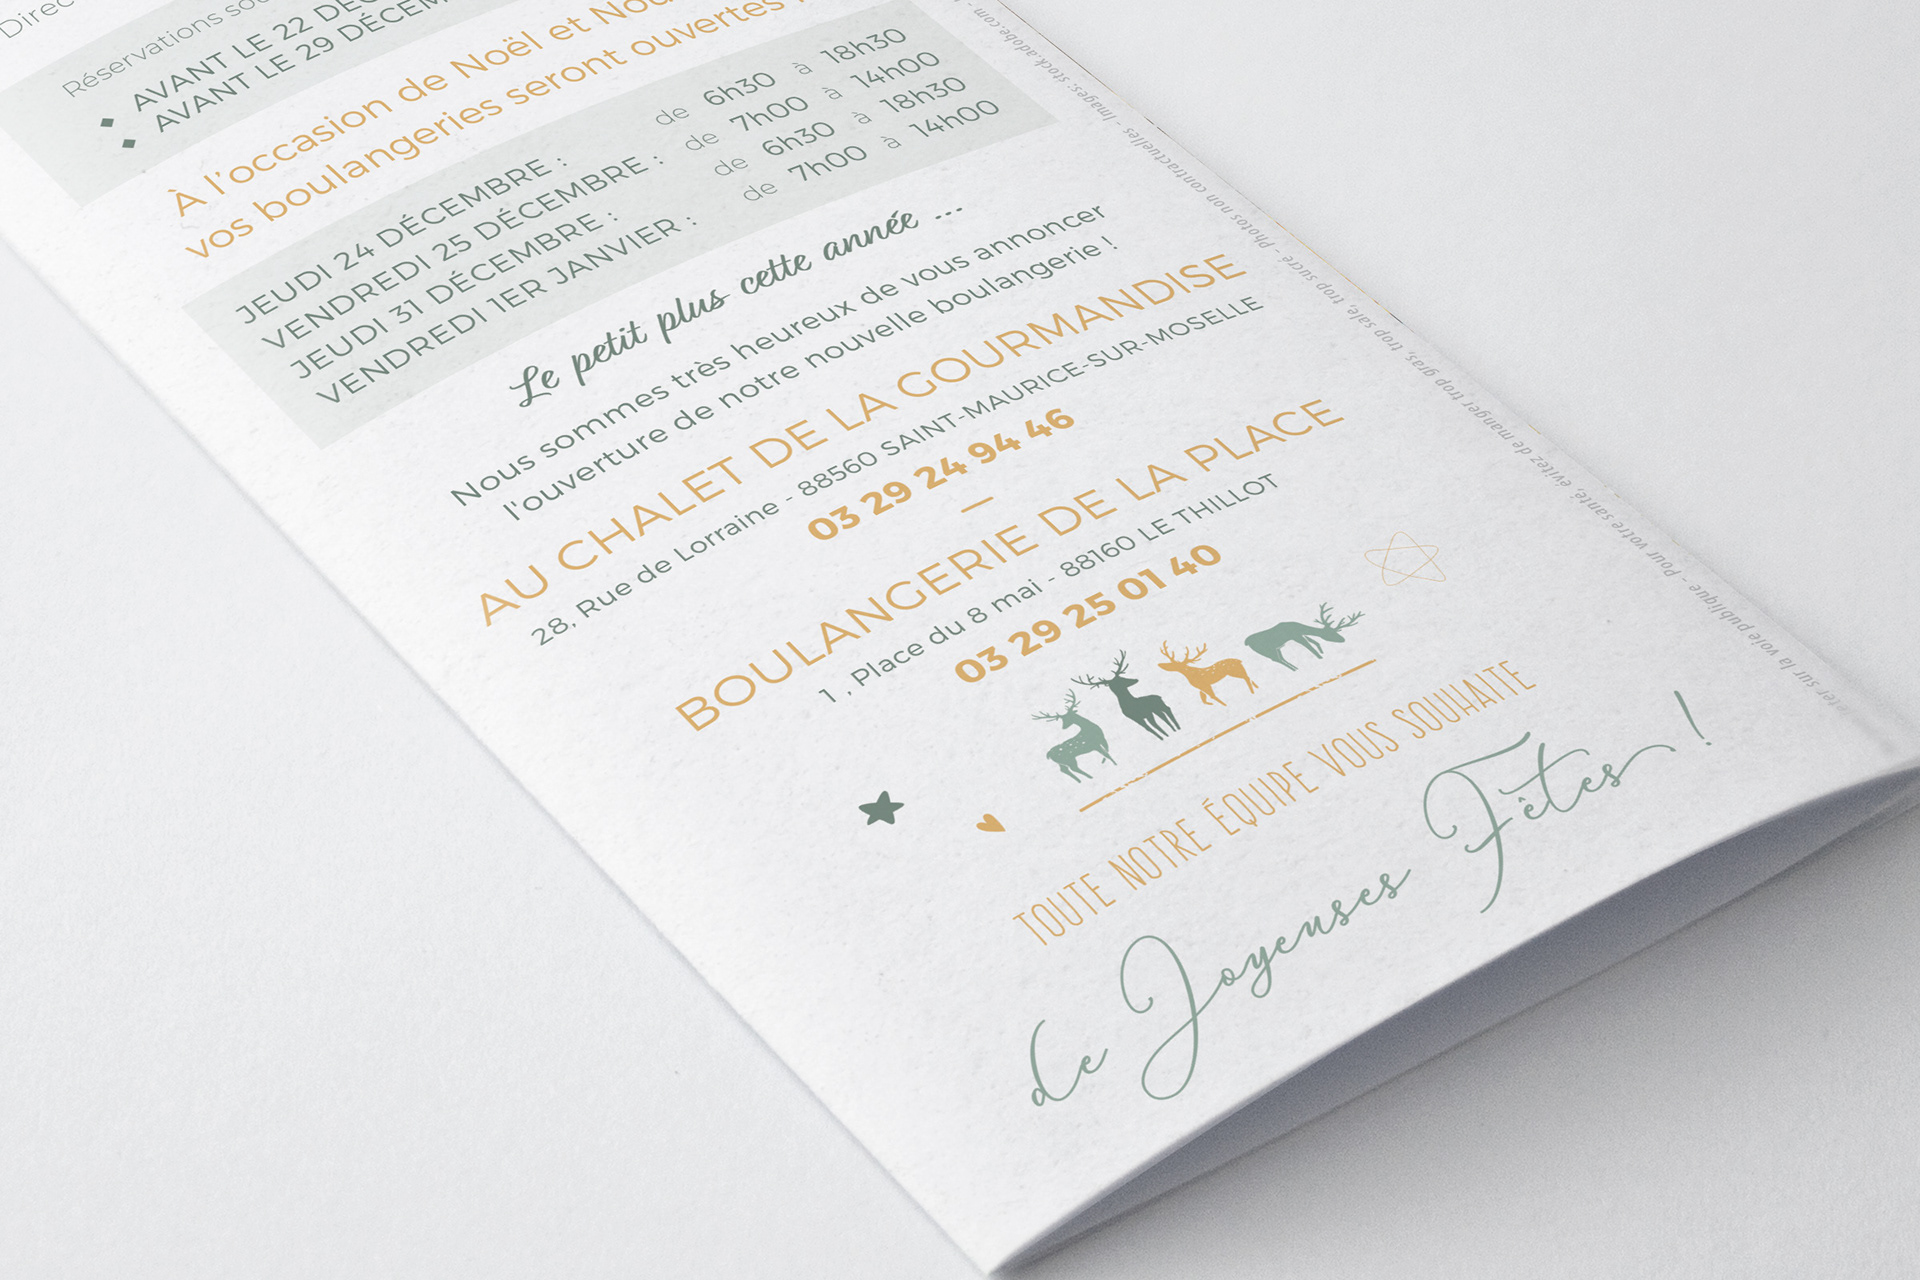 Direc
Réservations
AVANT LE 22 DÉC
AVANT LE 29 DÉCEM
À l'occasion de Noël et
vos boulangeries seront ouvertes
JEUDI 24 DÉCEMBRE : de 6h30 à 18h30
VENDREDI 25 DÉCEMBRE : de 7h00 à 14h00
JEUDI 31 DÉCEMBRE : de 6h30 à 18h30
VENDREDI 1ER JANVIER : de 7h00 à 14h00
Le petit plus cette année ...
Nous sommes très heureux de vous annoncer
l'ouverture de notre nouvelle boulangerie !
AU CHALET DE LA GOURMANDISE
28, Rue de Lorraine - 88560 SAINT-MAURICE-SUR-MOSELLE
03 29 24 94 46
—
BOULANGERIE DE LA PLACE
1 , Place du 8 mai - 88160 LE THILLOT
03 29 25 01 40
TOUTE NOTRE ÉQUIPE VOUS SOUHAITE
de Joyeuses Fêtes !
eter sur la voie publique - Pour votre santé, évitez de manger trop gras, trop salé, trop sucré - Photos non contractuelles - Images: stock.adobe.com -